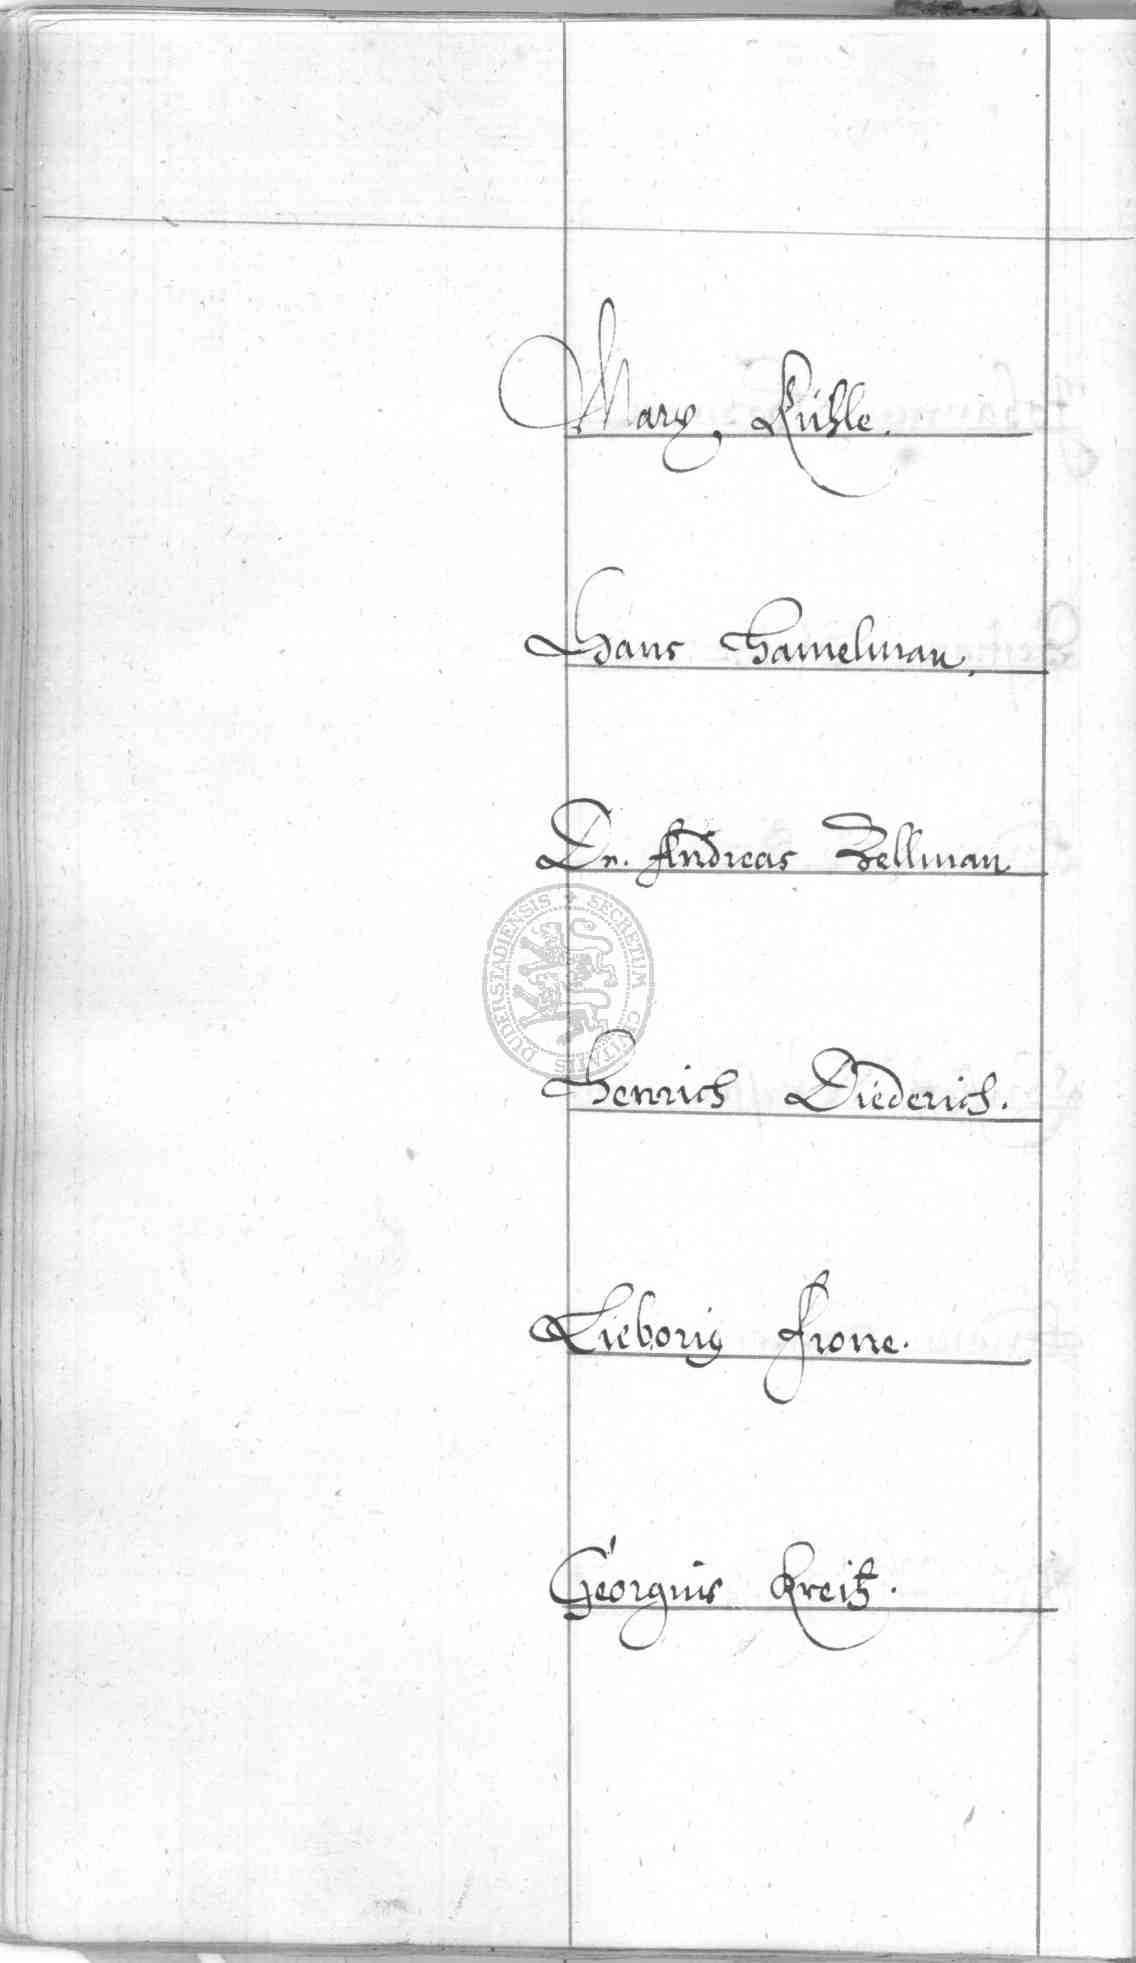 Marx Kühle.
Hans Hamelman,
Dn. Andreas Zellman
SECRETUM CIVITATIS DUDERSTADIENSIS
Henrich Diederich.
Lieborig Frone.
Georgius Kreitz.